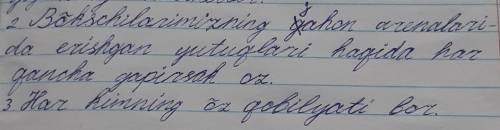 2. Bökschilarimizning jahon arenalari-
da erishgan yutuqlari haqida har
qancha gapirsak oz.
3. Har kimning öz qobilyati bor.